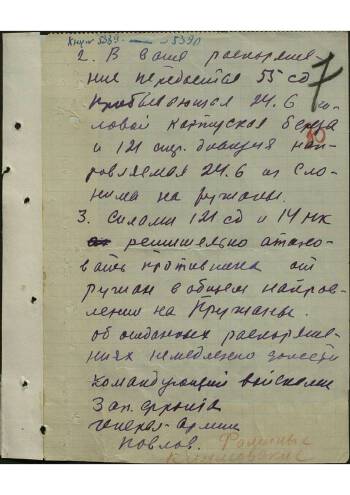 5389 — 5390
2. В ваше распоряже-
ние передается 55 сд
прибывающая 24.6 го-
ловой Картуская Береза
и 121 стр. дивизия нап-
равляемая 24.6 из Сло-
нима на Ружаны.
3. Силами 121 сд и 14 мк
решительно атако-
вать противника от
Ружан в общем направ-
лении на Пружаны.
Об отданных распоряже-
ниях немедленно донести
Командующий войсками
Зап. фронта
генерал армии
Павлов. Фоминых
Климовских